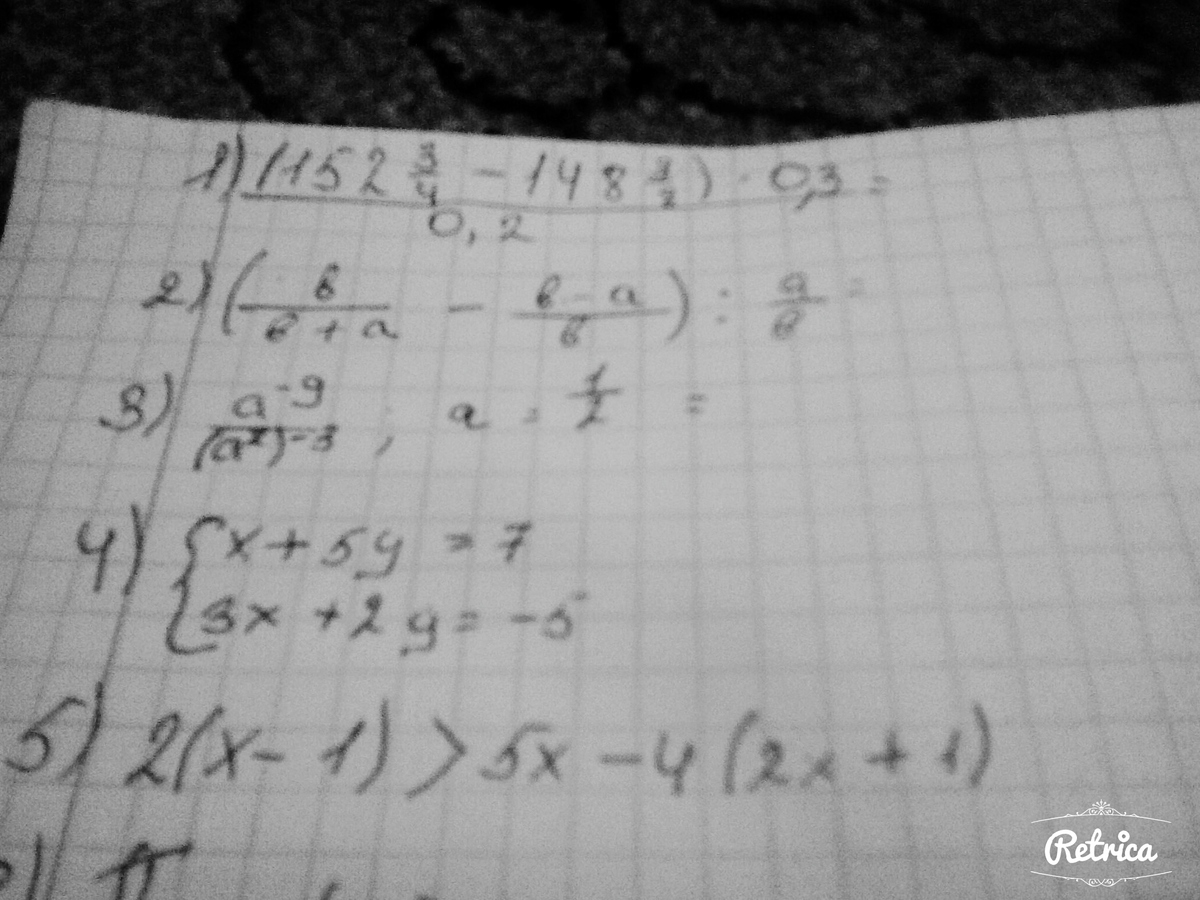 1) (152 3/4 - 148 3/2) · 0,3 =
0,2
2) (в/(в + а) - (в - а)/в) : а/в =
3) a⁻⁹/(a²)⁻³ ; a = 1/2 =
4) { x + 5y = 7
3x + 2y = -5
5) 2(x - 1) > 5x - 4(2x + 1)
Retrica